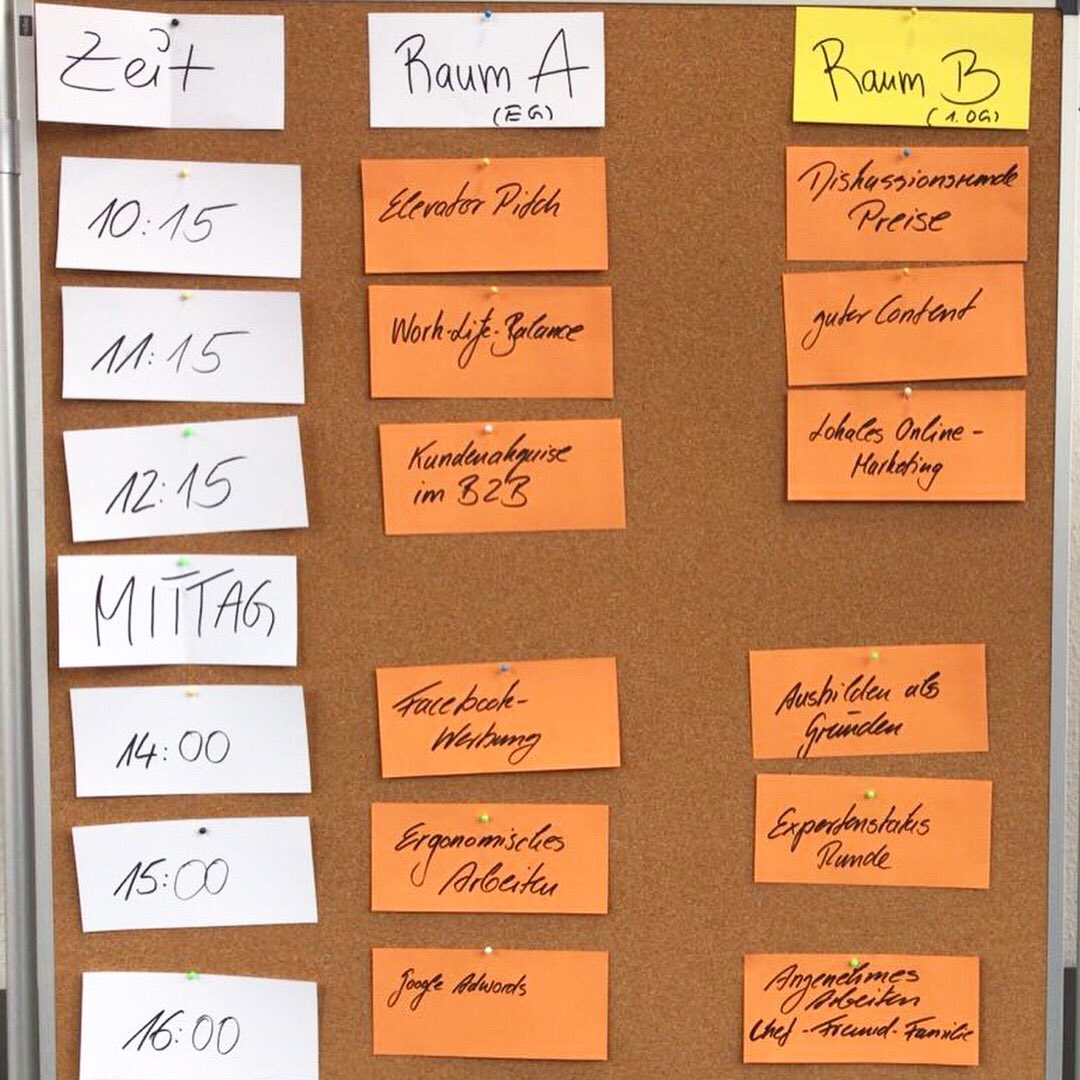 Zeit
Raum A
(EG)
Raum B
(1.OG)
10:15
Elevator Pitch
Diskussionsrunde
Preise
11:15
Work-Life-Balance
guter Content
12:15
Kundenakquise
im B2B
Lokales Online-
Marketing
MITTAG
14:00
Facebook-
Werbung
Ausbilden als
Gründen
15:00
Ergonomisches
Arbeiten
Expertenstatus
Runde
16:00
Google Adwords
Angenehmes
Arbeiten
Chef-Freund-Familie